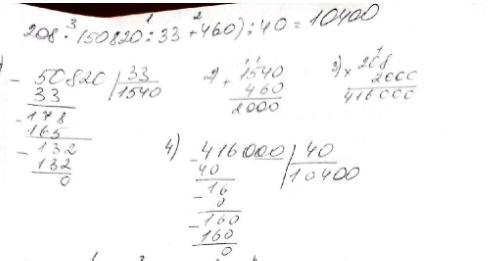 208 · (50820 : 33 + 460) : 40 = 10400
3 1 2
1) - 50820 | 33
33 1540
- 178
165
- 132
132
0
2) + 1540
460
2000
3) × 208
2000
416000
4) - 416000 | 40
40 10400
- 16
0
- 160
160
0